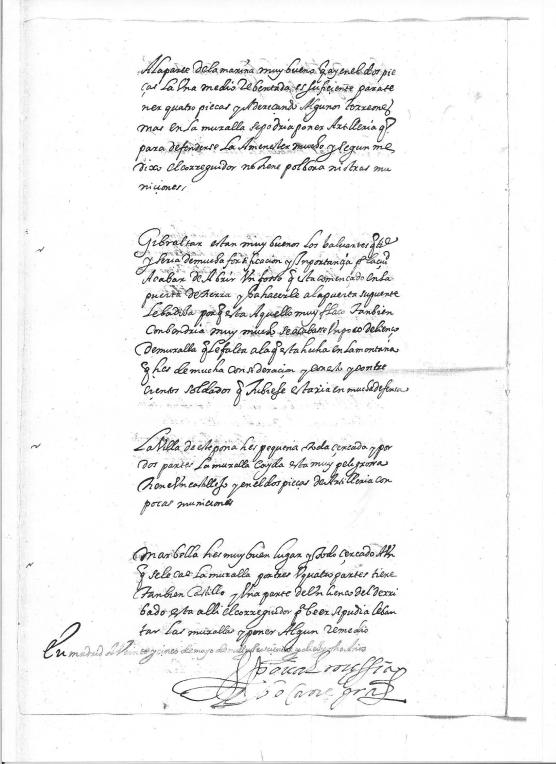 A la parte de la marina muy bueno q ay en el dos pie
ças la una medio Rebentada es suficiente para te
ner quatro pieças y Adereçando Algunos torreones
mas en la muralla se podria poner Artilleria q
para defenderse La A menester mucho y segun me
dixo el corregidor no tiene polbora ni otras mu
niciones,
Gibraltar estan muy buenos los baluartes q
y seria de mucha fortificacion y Importançia
Acabar de Abrir Un foso q esta començado en la
puerta de tierra y a la puerta siguiente
porq esta Aquello muy flaco tanbien
conbendria muy mucho se acabase Un poco de lienço
de muralla q le falta a la q esta hecha en la montaña
q hes de mucha consideracion y con esto y con tre
cientos soldados q tubiese estaria en mucha defensa
La Villa de estepona hes pequeña toda cercada y por
dos partes La muralla cayda esta muy peligrosa
tiene Un castillejo y en el dos pieças de Artilleria con
pocas municiones
Marbella hes muy buen lugar y todo çercado Aun
q se le cae La muralla por tres o quatro partes tiene
tanbien Castillo y Una parte del Un lienço del derri
bado esta alli el corregidor q beer si podia leban
tar Las murallas y poner Algun Remedio
En madrid a Veinte y cinco de mayo de mill y seiscientos y